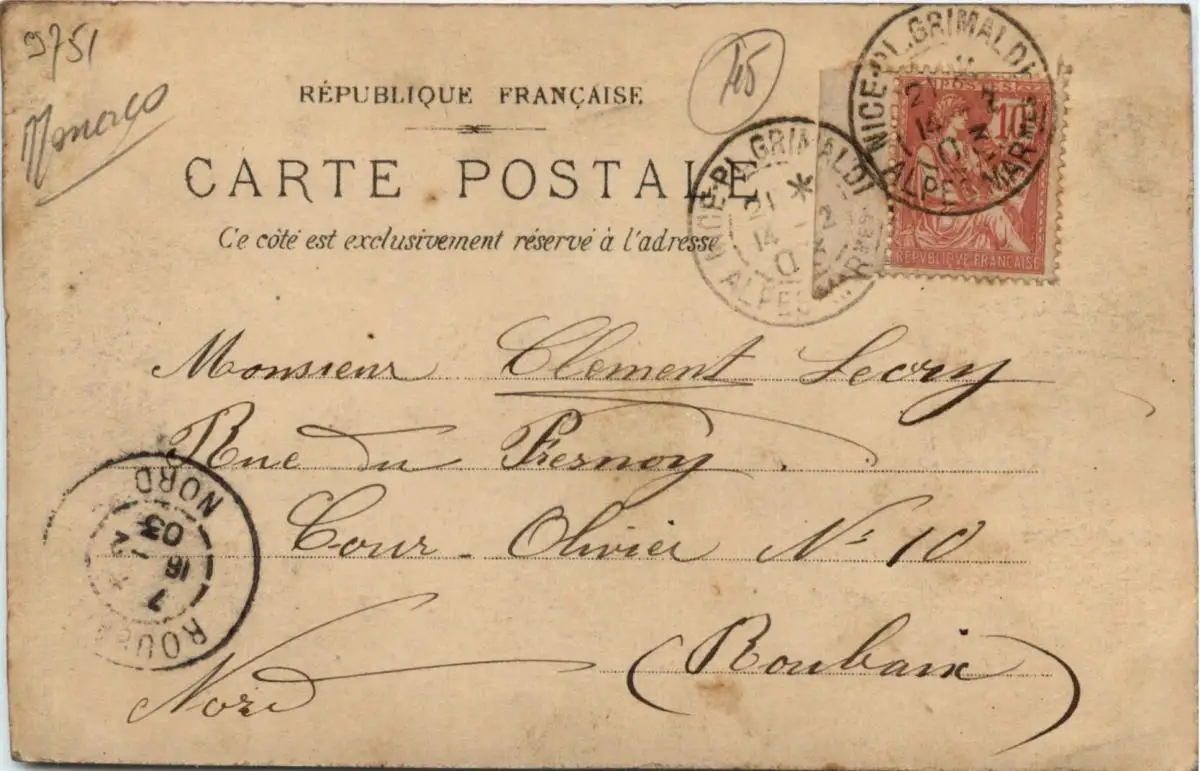 9751
Monaco
45
RÉPUBLIQUE FRANÇAISE
CARTE POSTALE
Ce côté est exclusivement réservé à l'adresse
NICE-PL.GRIMALDI
21
14
ALPES MARMES
NICE-PL.GRIMALDI
21 *
14
ALPES MARMES
POSTES
10
REPVBLIQVE FRANÇAISE
Monsieur Clément Leory
Rue du Fresnoy.
Cour-Olivier No 10
(Roubaix)
Nord
ROUB
7
16
03
NORD